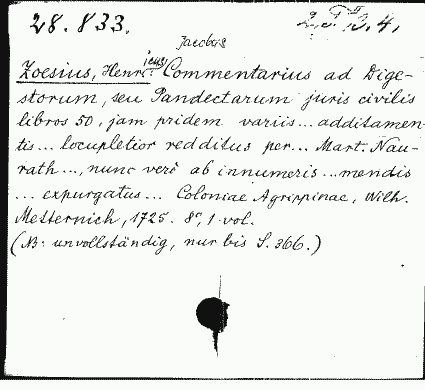 28.833.
Jacobus
Zoesius, Henricus, Commentarius ad Dige-
storum, seu Pandectarum juris civilis
libros 50, jam pridem variis ... additamen-
tis ... locupletior redditus per ... Mart. Nau-
rath ..., nunc verè ab innumeris ... mendis
... expurgatus ... Coloniae Agrippinae, Wilh.
Metternich, 1725. 8°, 1 vol.
(NB: unvollständig, nur bis S. 366.)